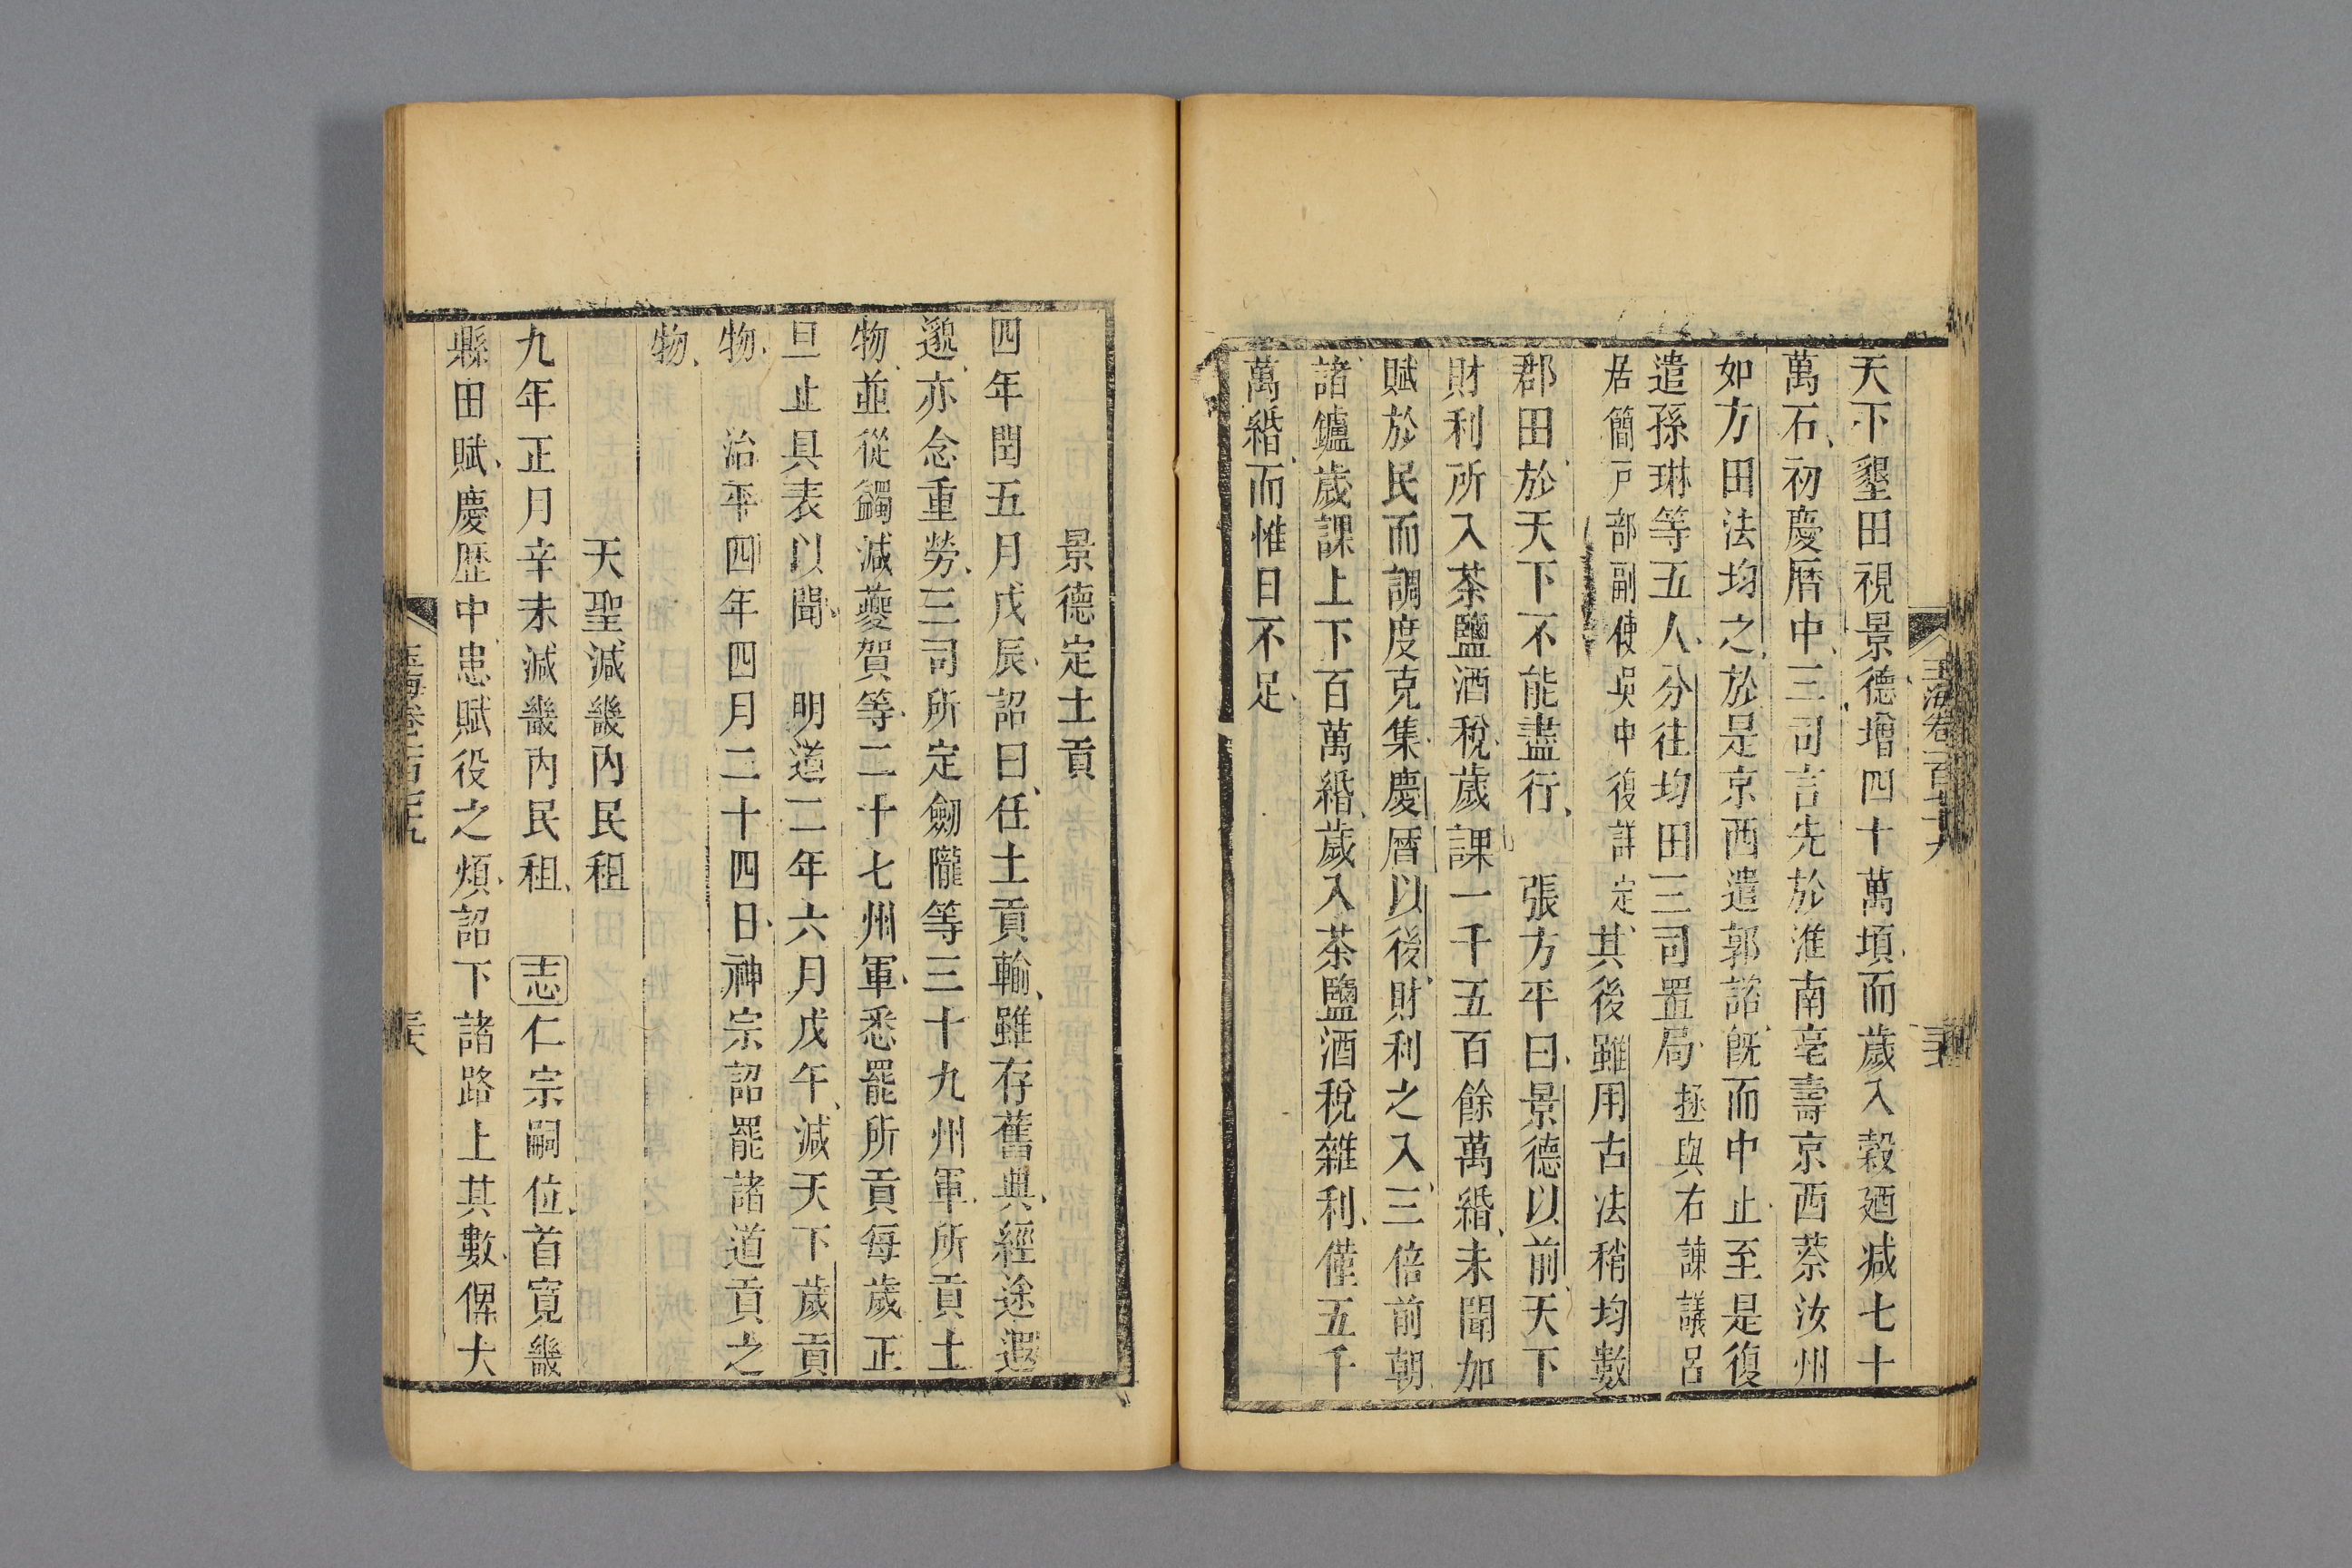 天下墾田視景德增四十萬頃而歲入穀廼减七十
萬石初慶曆中三司言先於淮南亳壽京西蔡汝州
如方田法均之於是京西遣郭諮旣而中止至是復
遣孫琳等五人分往均田三司置局拯與右諫議呂
居簡戸部副使吳中復詳定其後雖用古法稍均數
郡田於天下不能盡行 張方平曰景德以前天下
財利所入茶鹽酒稅歲課一千五百餘萬緡未聞加
賦於民而調度克集慶曆以後財利之入三倍前朝
諸鑪歲課上下百萬緡歲入茶鹽酒稅雜利僅五千
萬緡而惟日不足
景德定土貢
四年閏五月戊辰詔曰任土貢輸雖存舊典經途遐
邈亦念重勞三司所定劒隴等三十九州軍所貢土
物並從蠲減夔賀等二十七州軍悉罷所貢每歲正
旦止具表以聞 明道二年六月戊午減天下歲貢
物 治平四年四月二十四日神宗詔罷諸道貢之
物
天聖減畿內民租
九年正月辛未減畿內民租 志仁宗嗣位首寬畿
縣田賦慶歷中患賦役之煩詔下諸路上其數俾大